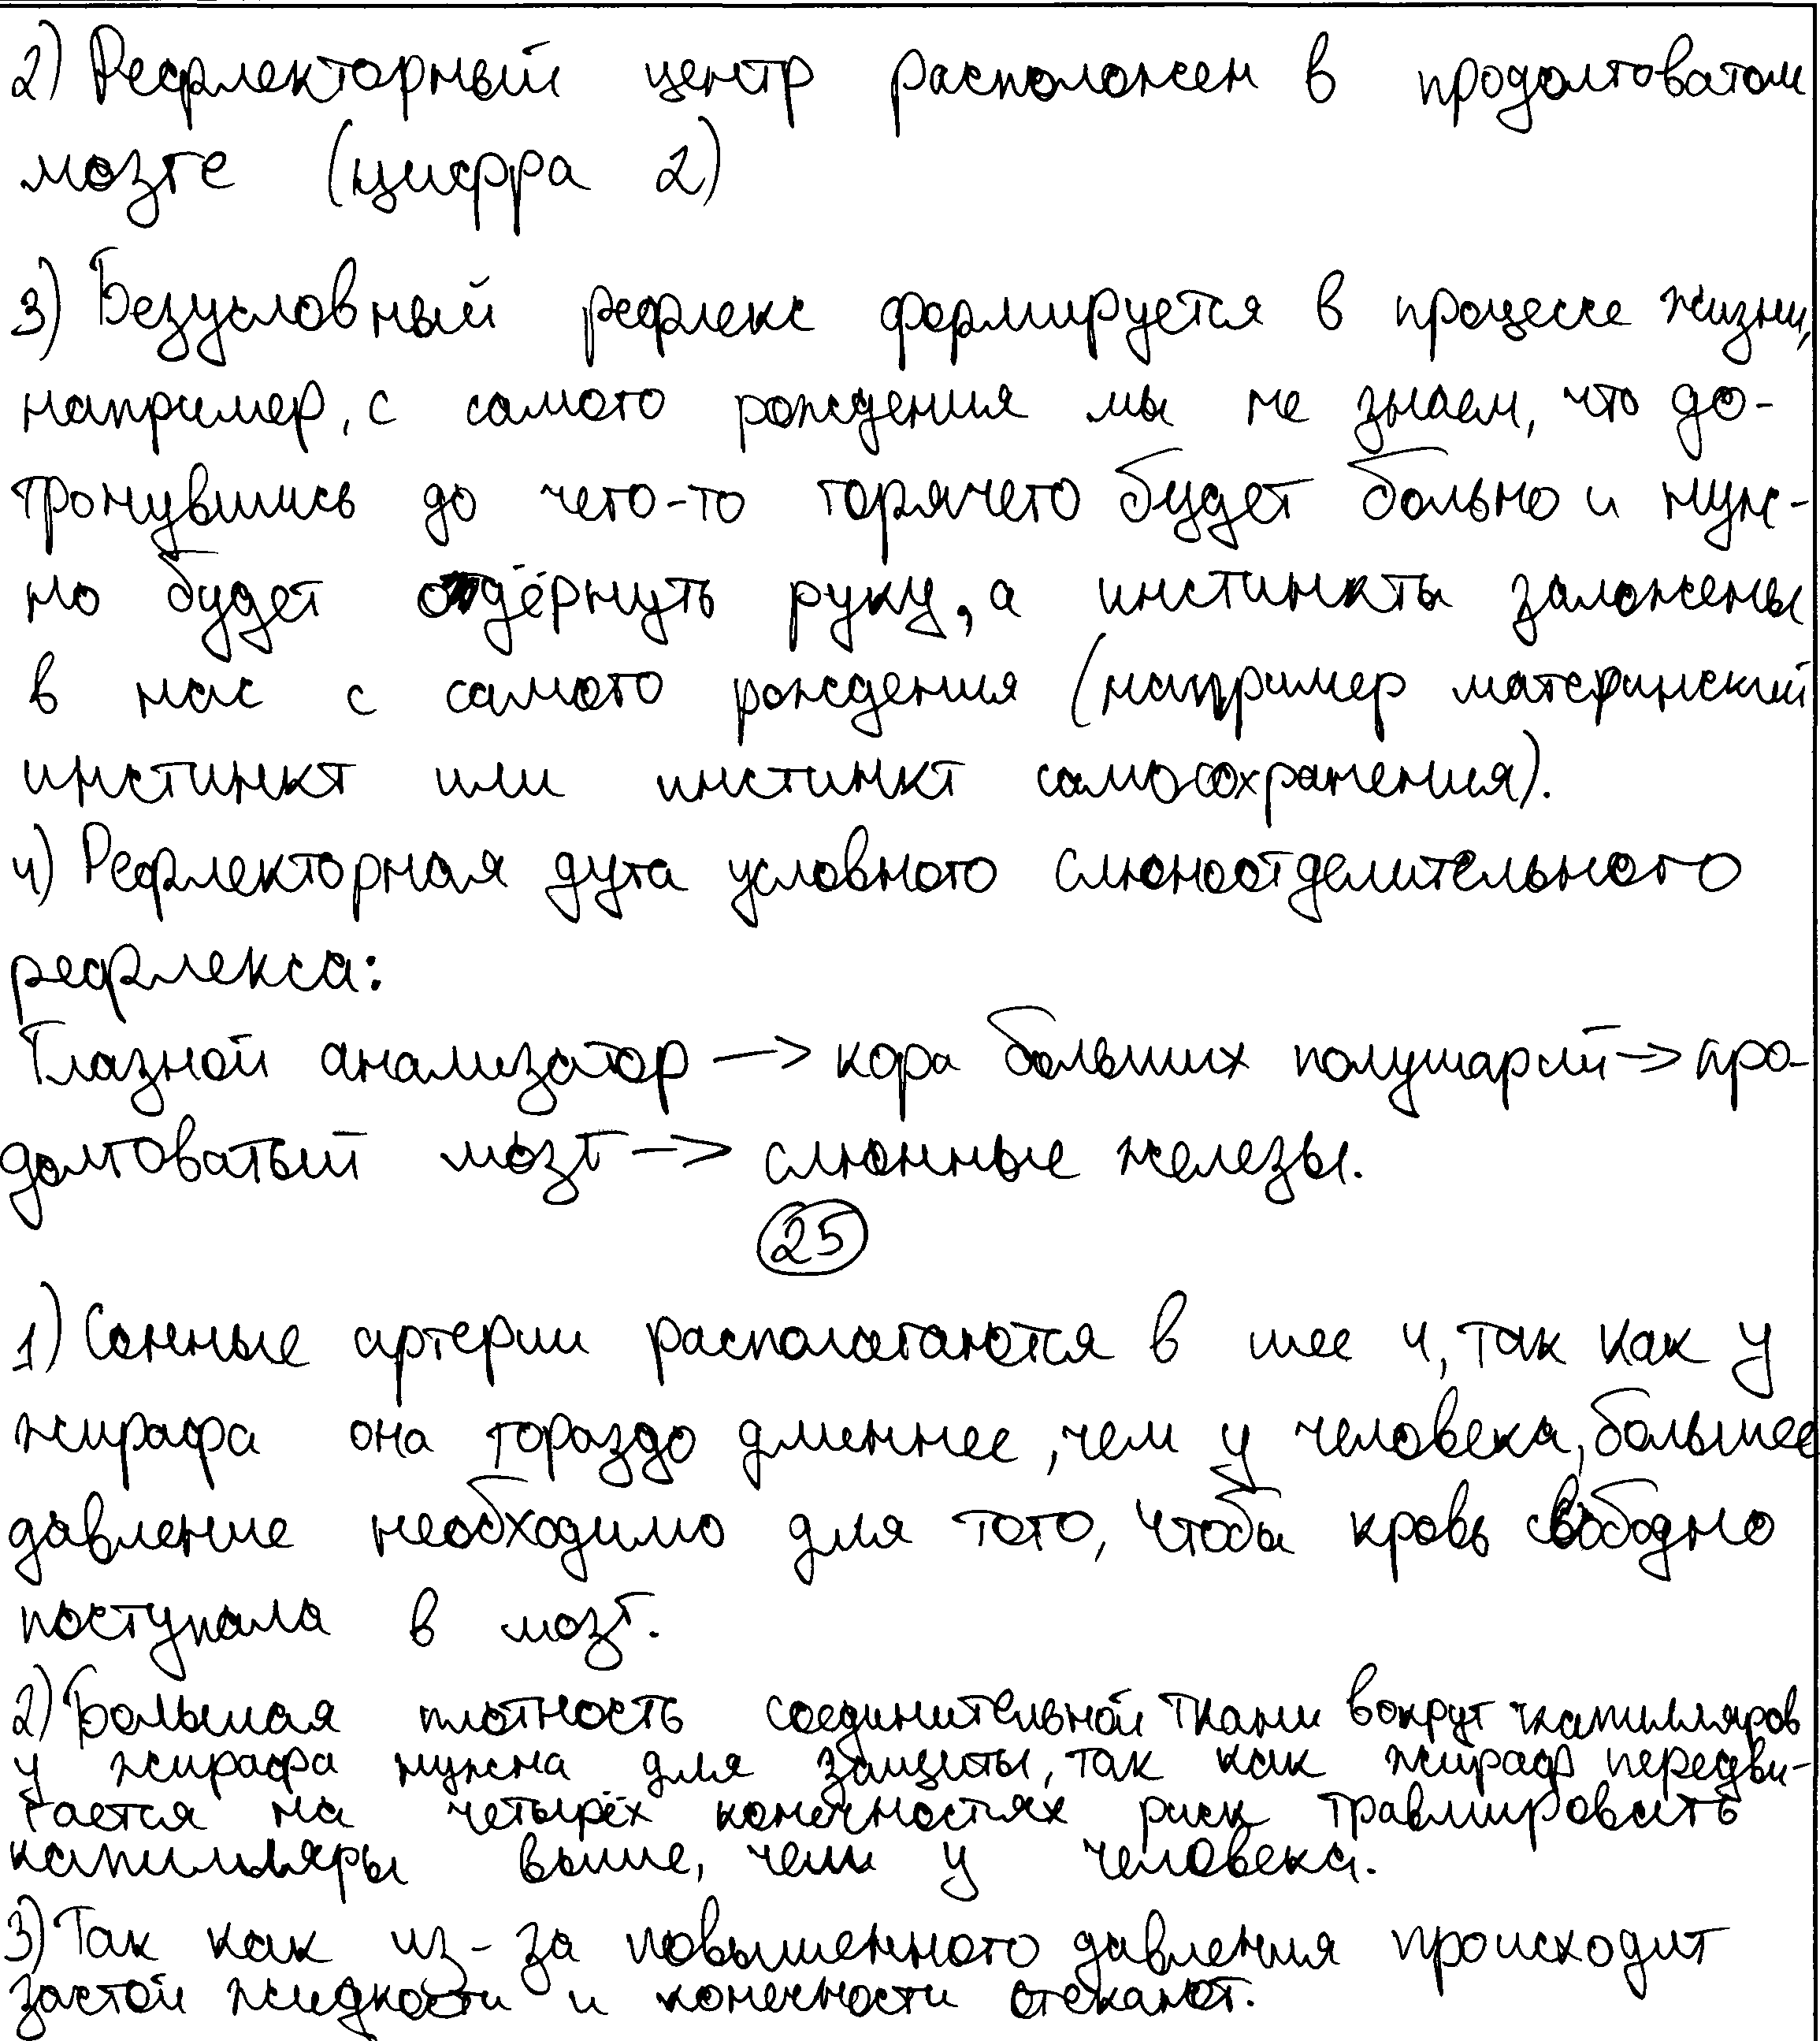 2) Рефлекторный центр расположен в продолговатом
мозге (цифра 2)
3) Безусловный рефлекс формируется в процессе жизни,
например, с самого рождения мы не знаем, что до-
тронувшись до чего-то горячего будет больно и нуж-
но будет отдёрнуть руку, а инстинкты заложены
в нас с самого рождения (например материнский
инстинкт или инстинкт самосохранения).
4) Рефлекторная дуга условного слюноотделительного
рефлекса:
Глазной анализатор —> кора больших полушарий —> про-
долговатый мозг —> слюнные железы.
25
1) Сонные артерии располагаются в шее и, так как у
жирафа она гораздо длиннее, чем у человека, большее
давление необходимо для того, чтобы кровь свободно
поступала в мозг.
2) Большая плотность соединительной ткани вокруг капилляров
у жирафа нужна для защиты, так как жираф передви-
гается на четырёх конечностях риск травмировать
капилляры выше, чем у человека.
3) Так как из-за повышенного давления происходит
застой жидкости и конечности отекают.